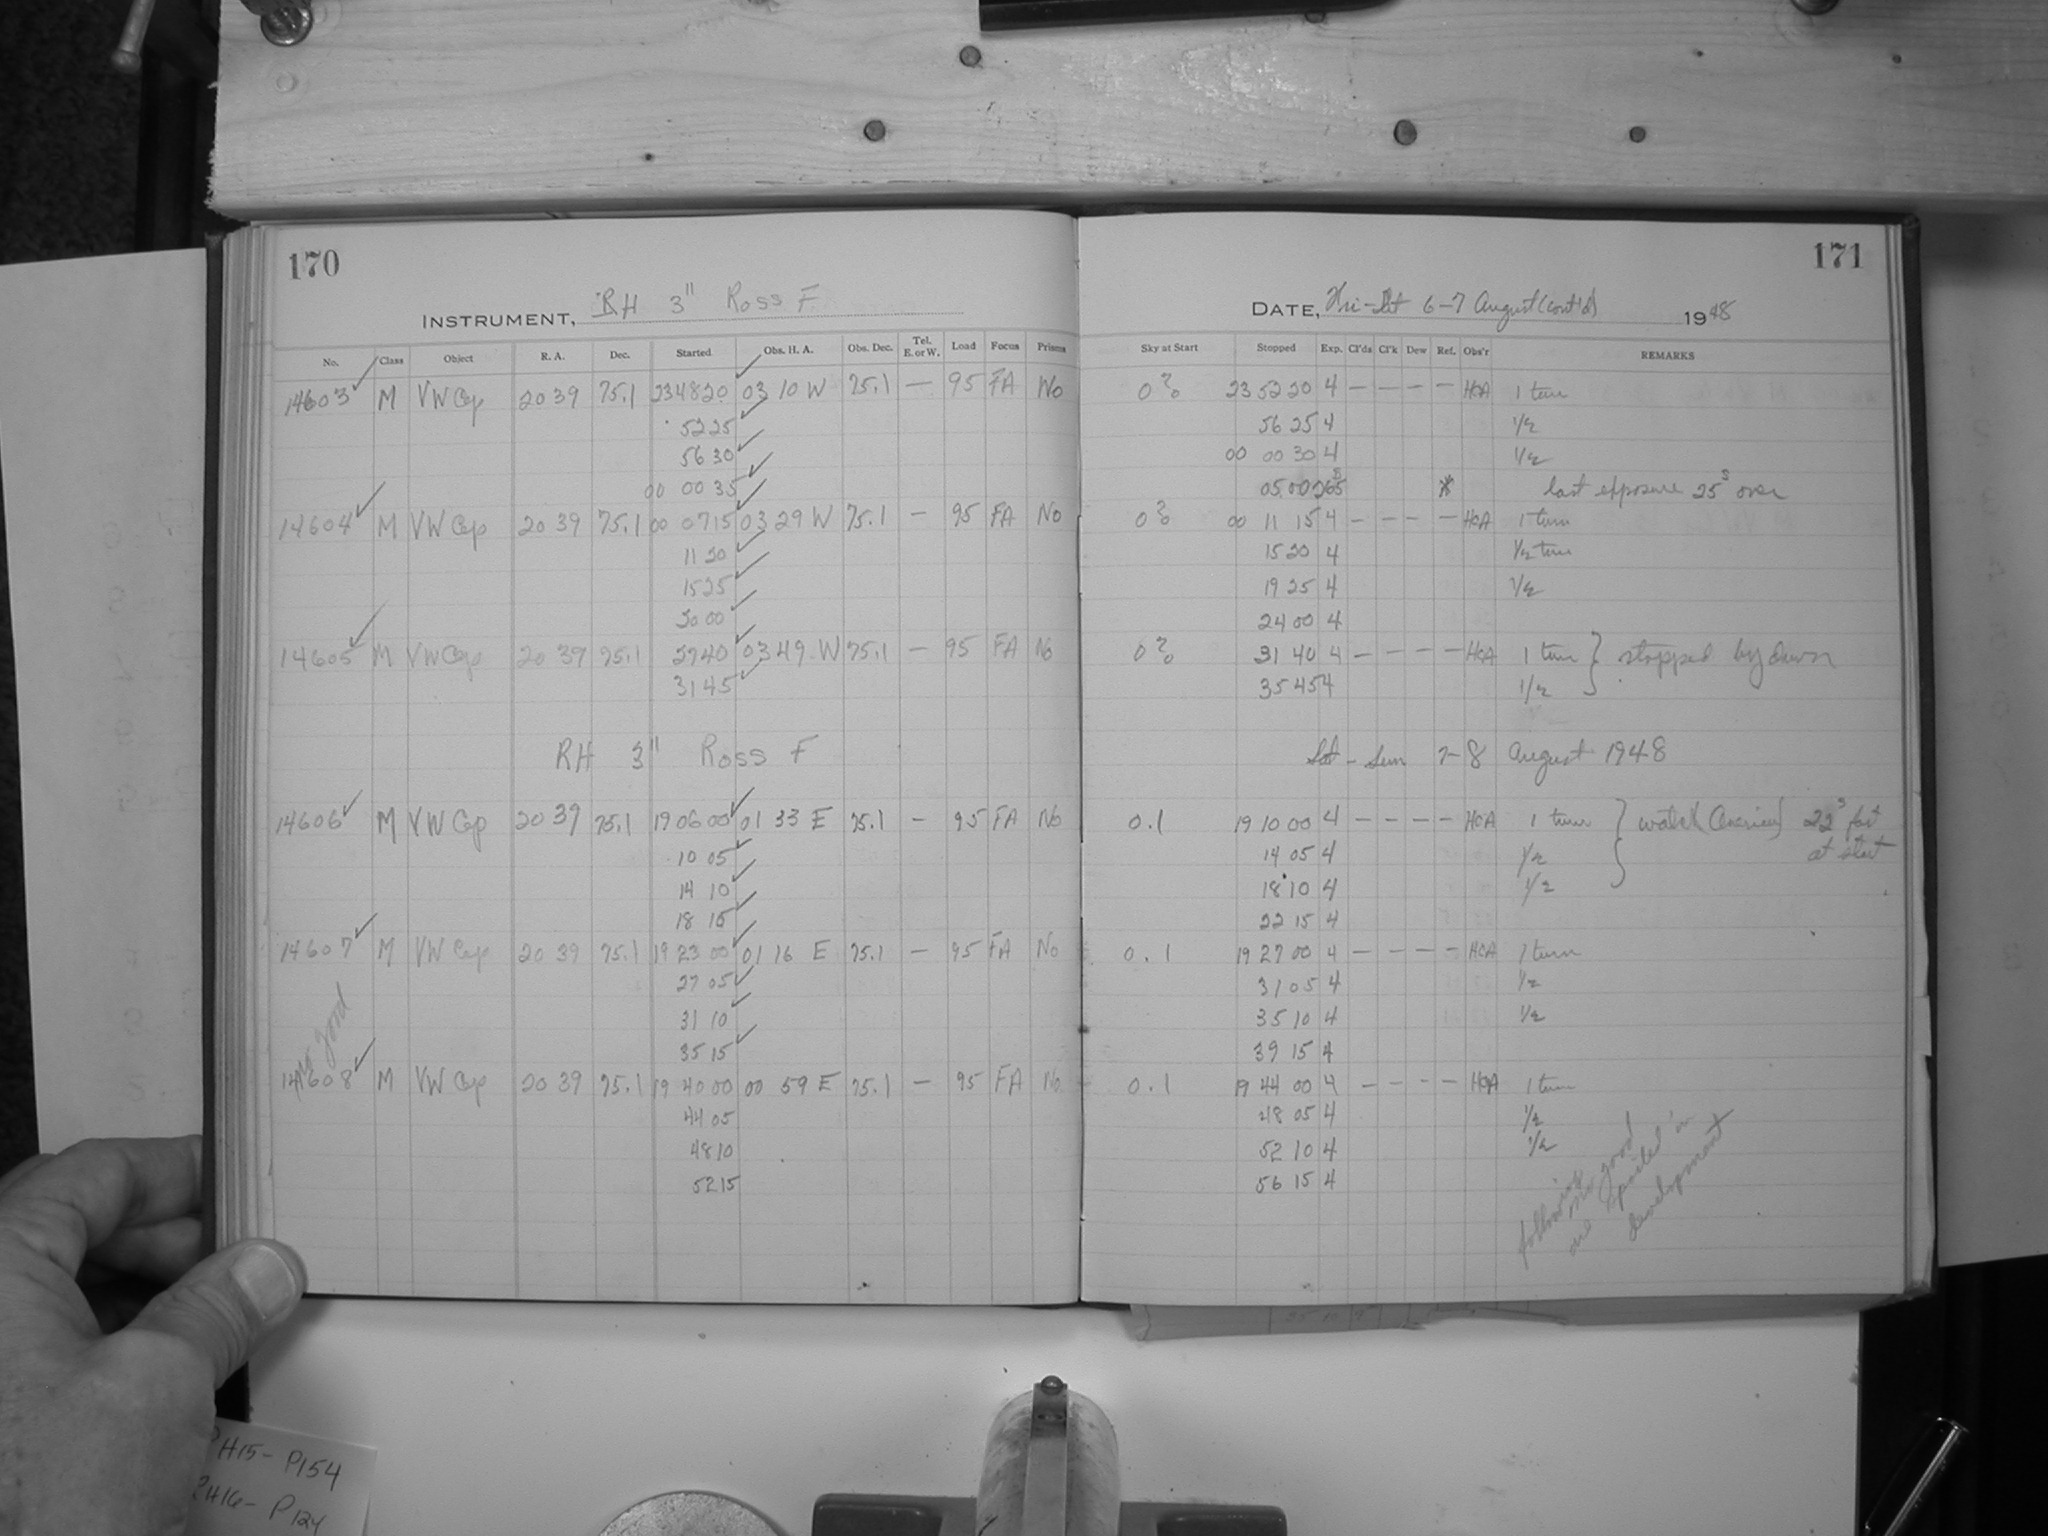 170
171
INSTRUMENT, RH 3" Ross F
DATE, Fri-Sat 6-7 August (cont'd) 1948
No. Class Object R. A. Dec. Started Obs. H. A. Obs. Dec. Tel. E. or W. Load Focus Prisms Sky at Start Stopped Exp. Cl'ds Cl'k Dew Ref. Obs'r REMARKS
14603 ✓ M VW Cep 20 39 75.1 23 48 20 ✓ 03 10 W 75.1 — 95 FA No 0? 23 52 20 4 — — — — HCA 1 turn
52 25 ✓ 56 25 4 1/2
56 30 ✓ 00 00 30 4 1/2
00 00 35 ✓ 05 00 265s * last exposure 25s over
14604 ✓ M VW Cep 20 39 75.1 00 07 15 ✓ 03 29 W 75.1 — 95 FA No 0? 00 11 15 4 — — — — HCA 1 turn
11 20 ✓ 15 20 4 1/2 turn
15 25 ✓ 19 25 4 1/2
20 00 ✓ 24 00 4
14605 ✓ M VW Cep 20 39 75.1 27 40 ✓ 03 49 W 75.1 — 95 FA No 0? 31 40 4 — — — — HCA 1 turn } stopped by dawn
31 45 ✓ 35 45 4 1/2
RH 3" Ross F Sat - Sun 7-8 August 1948
14606 ✓ M VW Cep 20 39 75.1 19 06 00 ✓ 01 33 E 75.1 — 95 FA No 0.1 19 10 00 4 — — — — HCA 1 turn } watch 22s fast
10 05 ✓ 14 05 4 1/2 at start
14 10 ✓ 18 10 4 1/2
18 15 ✓ 22 15 4
14607 ✓ M VW Cep 20 39 75.1 19 23 00 ✓ 01 16 E 75.1 — 95 FA No 0.1 19 27 00 4 — — — — HCA 1 turn
27 05 ✓ 31 05 4 1/2
31 10 ✓ 35 10 4 1/2
35 15 ✓ 39 15 4
No good
14608 ✓ M VW Cep 20 39 75.1 19 40 00 00 59 E 75.1 — 95 FA No 0.1 19 44 00 4 — — — — HCA 1 turn
44 05 48 05 4 1/2
48 10 52 10 4 1/2
52 15 56 15 4
following no good
are spoiled in
development
H15 - P154
H16 - P124